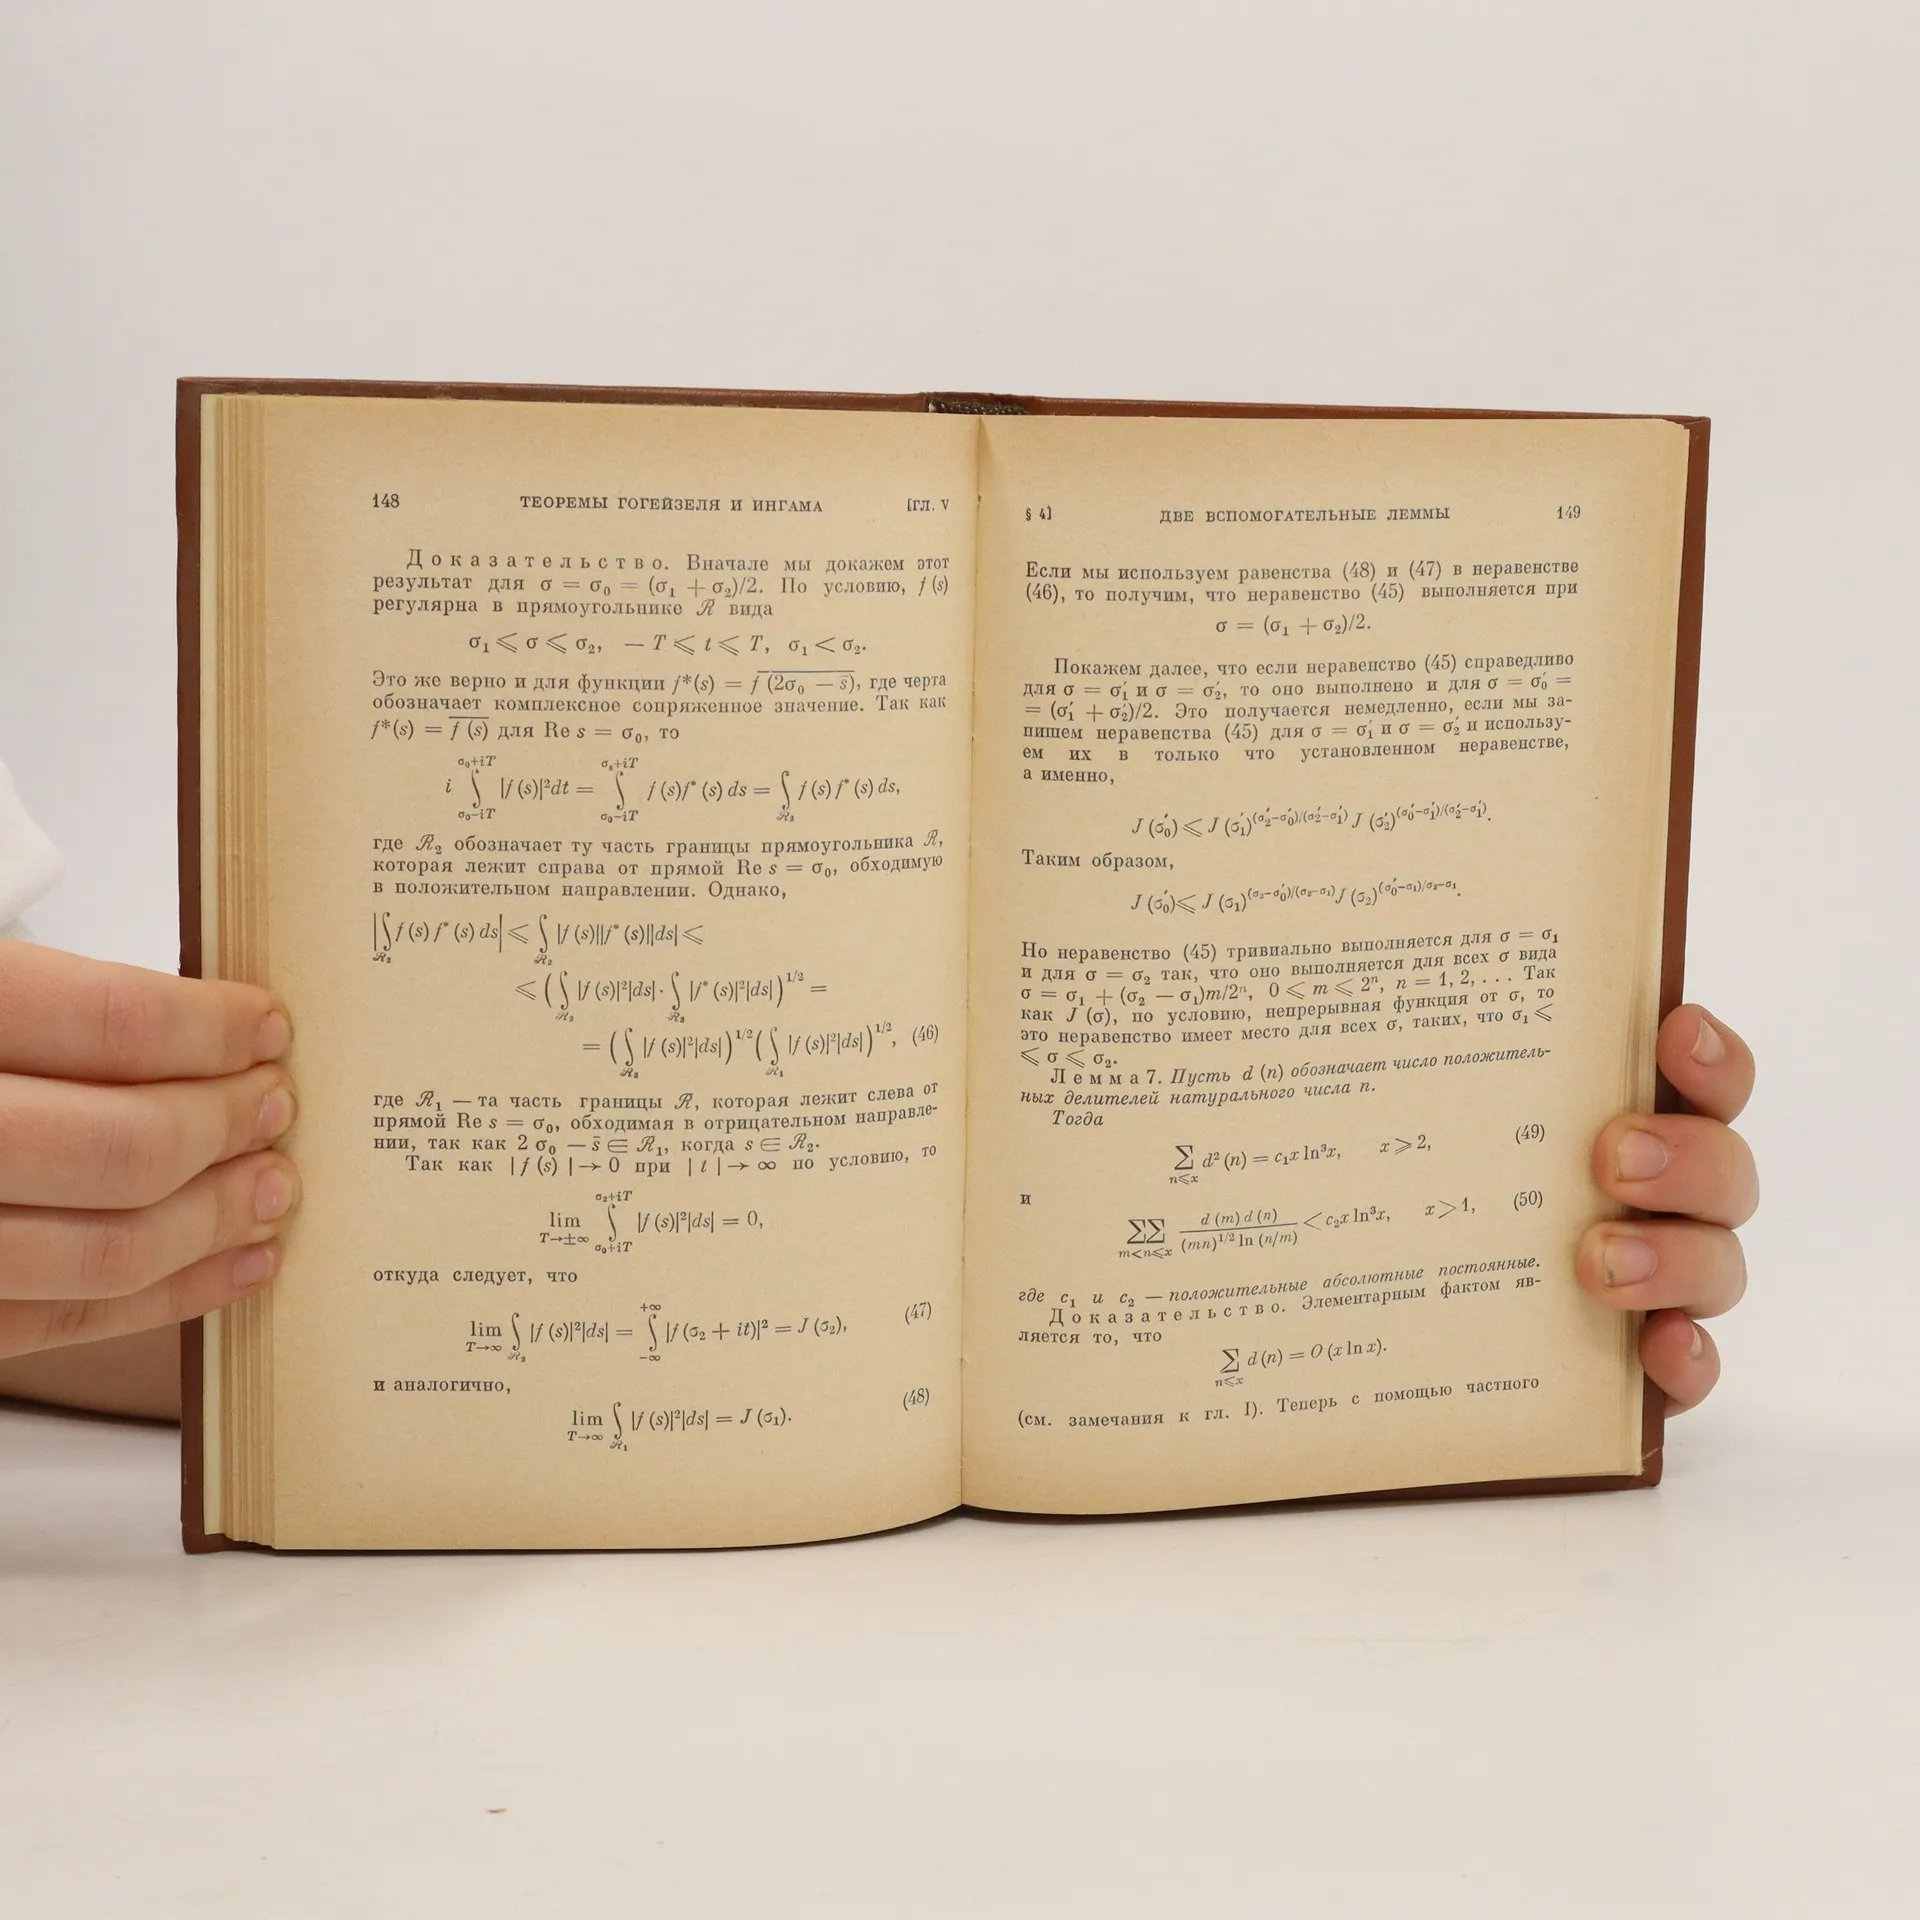 148 ТЕОРЕМЫ ГОГЕЙЗЕЛЯ И ИНГАМА [ГЛ. V
Доказательство. Вначале мы докажем этот
результат для σ = σ₀ = (σ₁ + σ₂)/2. По условию, f (s)
регулярна в прямоугольнике ℛ вида
σ₁ ⩽ σ ⩽ σ₂, — T ⩽ t ⩽ T, σ₁ < σ₂.
Это же верно и для функции f*(s) = \overline{f (2σ₀ — s̄)}, где черта
обозначает комплексное сопряженное значение. Так как
f*(s) = \overline{f (s)} для Re s = σ₀, то
i ∫_{σ₀−iT}^{σ₀+iT} |f (s)|²dt = ∫_{σ₀−iT}^{σ₀+iT} f (s)f* (s) ds = ∫_{ℛ₂} f (s) f* (s) ds,
где ℛ₂ обозначает ту часть границы прямоугольника ℛ,
которая лежит справа от прямой Re s = σ₀, обходимую
в положительном направлении. Однако,
|∫_{ℛ₂} f (s) f* (s) ds| ⩽ ∫_{ℛ₂} |f (s)||f* (s)||ds| ⩽
⩽ (∫_{ℛ₂} |f (s)|²|ds| · ∫_{ℛ₂} |f* (s)|²|ds|)^{1/2} =
= (∫_{ℛ₂} |f (s)|²|ds|)^{1/2} (∫_{ℛ₁} |f (s)|²|ds|)^{1/2}, (46)
где ℛ₁ — та часть границы ℛ, которая лежит слева от
прямой Re s = σ₀, обходимая в отрицательном направле-
нии, так как 2 σ₀ — s̄ ∈ ℛ₁, когда s ∈ ℛ₂.
Так как | f (s) | → 0 при | t | → ∞ по условию, то
lim_{T→±∞} ∫_{σ₀+iT}^{σ₂+iT} |f (s)|²|ds| = 0,
откуда следует, что
lim_{T→∞} ∫_{ℛ₂} |f (s)|²|ds| = ∫_{−∞}^{+∞} |f (σ₂ + it)|² = J (σ₂), (47)
и аналогично,
lim_{T→∞} ∫_{ℛ₁} |f (s)|²|ds| = J (σ₁). (48)
§ 4] ДВЕ ВСПОМОГАТЕЛЬНЫЕ ЛЕММЫ 149
Если мы используем равенства (48) и (47) в неравенстве
(46), то получим, что неравенство (45) выполняется при
σ = (σ₁ + σ₂)/2.
Покажем далее, что если неравенство (45) справедливо
для σ = σ₁′ и σ = σ₂′, то оно выполнено и для σ = σ₀′ =
= (σ₁′ + σ₂′)/2. Это получается немедленно, если мы за-
пишем неравенства (45) для σ = σ₁′ и σ = σ₂′ и использу-
ем их в только что установленном неравенстве,
а именно,
J (σ₀′) ⩽ J (σ₁′)^{(σ₂′−σ₀′)/(σ₂′−σ₁′)} J (σ₂′)^{(σ₀′−σ₁′)/(σ₂′−σ₁′)}.
Таким образом,
J (σ₀′) ⩽ J (σ₁)^{(σ₂−σ₀′)/(σ₂−σ₁)} J (σ₂)^{(σ₀′−σ₁)/σ₂−σ₁}.
Но неравенство (45) тривиально выполняется для σ = σ₁
и для σ = σ₂ так, что оно выполняется для всех σ вида
σ = σ₁ + (σ₂ — σ₁)m/2ⁿ, 0 ⩽ m ⩽ 2ⁿ, n = 1, 2, . . . Так
как J (σ), по условию, непрерывная функция от σ, то
это неравенство имеет место для всех σ, таких, что σ₁ ⩽
⩽ σ ⩽ σ₂.
Лемма 7. Пусть d (n) обозначает число положитель-
ных делителей натурального числа n.
Тогда
∑_{n⩽x} d² (n) = c₁x ln³x, x ⩾ 2, (49)
и
∑∑_{m<n⩽x} d (m) d (n) / (mn)^{1/2} ln (n/m) < c₂x ln³x, x > 1, (50)
где c₁ и c₂ — положительные абсолютные постоянные.
Доказательство. Элементарным фактом яв-
ляется то, что
∑_{n⩽x} d (n) = O (x ln x).
(см. замечания к гл. I). Теперь с помощью частного